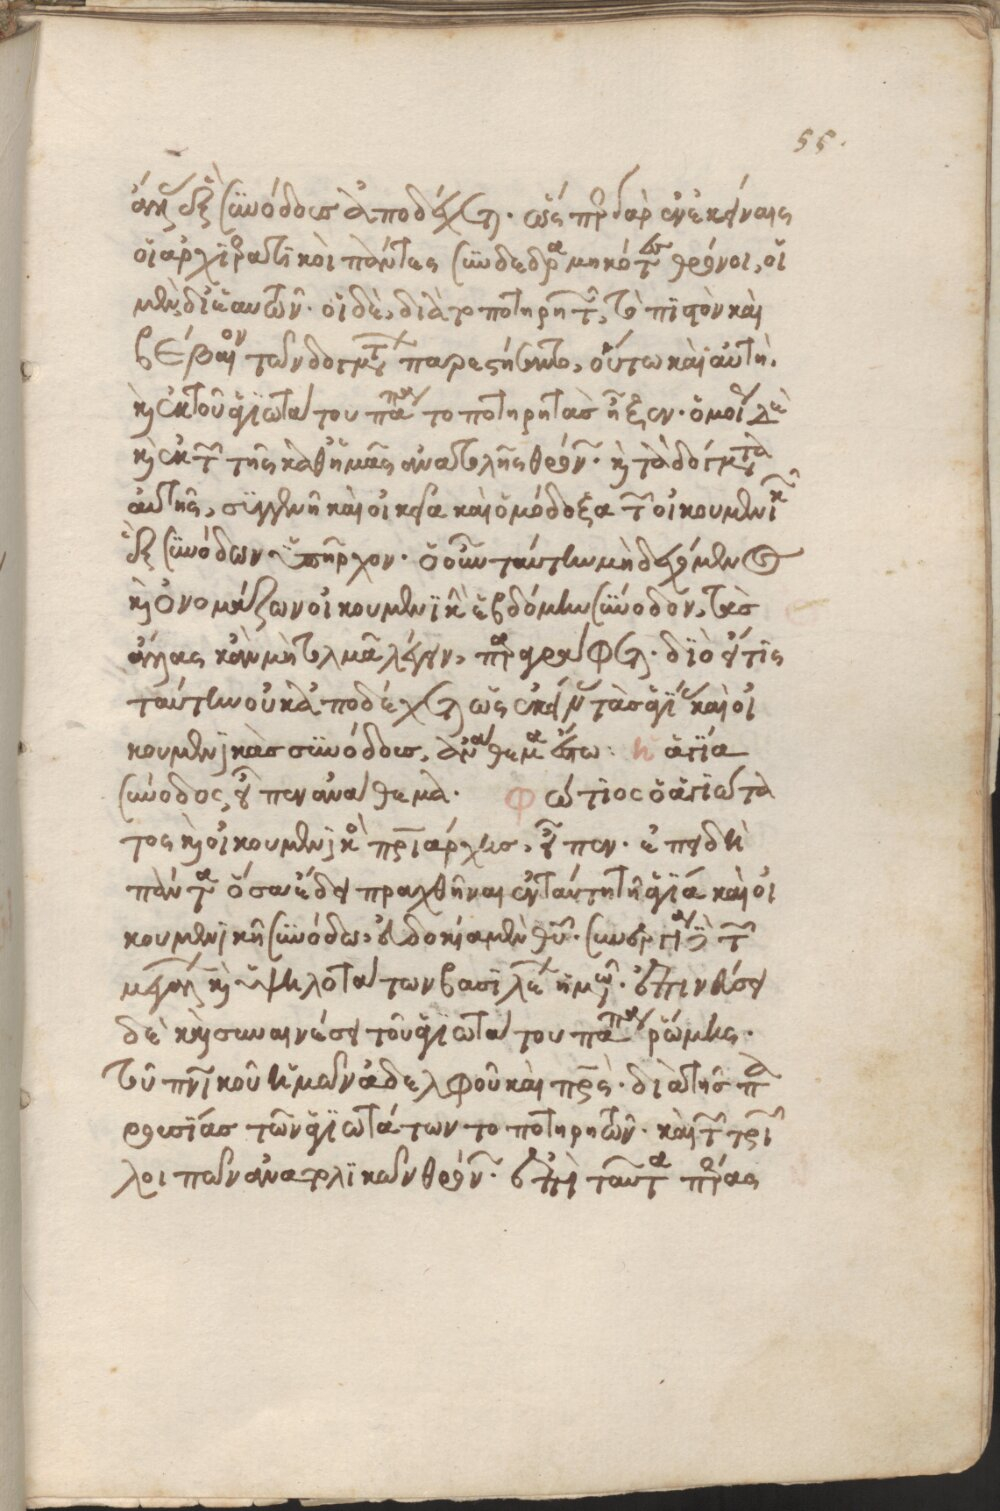 55.
ἄλλας ἓξ συνόδους ἀποδέχεται. ὥσπερ γὰρ ἐν ἐκείναις
οἱ ἀρχιερατικοὶ πάντες συνδεδραμηκότες θρόνοι, οἱ
μὲν δι' ἑαυτῶν. οἱ δὲ, διὰ τοποτηρητῶν, τὸ πιστὸν καὶ
βέβαιον τῶν δογμάτων παρεστήσαντο, οὕτω καὶ αὐτὴ.
καὶ ἐκ τοῦ ἁγιωτάτου πάπα τοποτηρητὰς ἦξεν. ὁμοίως δὲ
καὶ ἐκ τῶν τῆς καθ' ἡμᾶς ἀνατολῆς θρόνων. καὶ τὰ δόγματα
αὐτῆς, συγγενῆ καὶ οἰκεῖα καὶ ὁμόδοξα τῶν οἰκουμενικῶν
ἓξ συνόδων ὑπῆρχον. ὁ οὖν ταύτην μὴ δεχόμενος
καὶ ὀνομάζων οἰκουμενικὴν ἑβδόμην σύνοδον, τὰς
ἄλλας κἂν μὴ τολμᾶ λέγειν, παραγράφεται. διὸ εἴ τις
ταύτην οὐκ ἀποδέχεται ὡς ἐκείνας τὰς ἁγίας καὶ οἰ
κουμενικὰς συνόδους, ἀνάθεμα ἔστω: ἡ ἁγία
σύνοδος εἶπεν ἀνάθεμα. Φώτιος ὁ ἁγιώτα
τος καὶ οἰκουμενικὸς πατριάρχης, εἶπεν. ἐπειδὴ
πάντα ὅσα ἔδει πραχθῆναι ἐν ταύτῃ τῇ ἁγίᾳ καὶ οἰ
κουμενικῇ συνόδω, εὐδοκίᾳ μὲν θεοῦ. συνεργίᾳ δὲ τῶν
μεγάλων καὶ ὑψηλοτάτων βασιλέων ἡμῶν. ἐπινεύσει
δὲ καὶ συναινέσει τοῦ ἁγιωτάτου πάπα ῥώμης.
τοῦ πνευματικοῦ ἡμῶν ἀδελφοῦ καὶ πατρὸς. διὰ τῆς πα
ρουσίας τῶν ἁγιωτάτων τοποτηρητῶν. καὶ τῶν τριῶν
λοιπῶν ἀνατολικῶν θρόνων. ἐπὶ ταῦτα πέρας